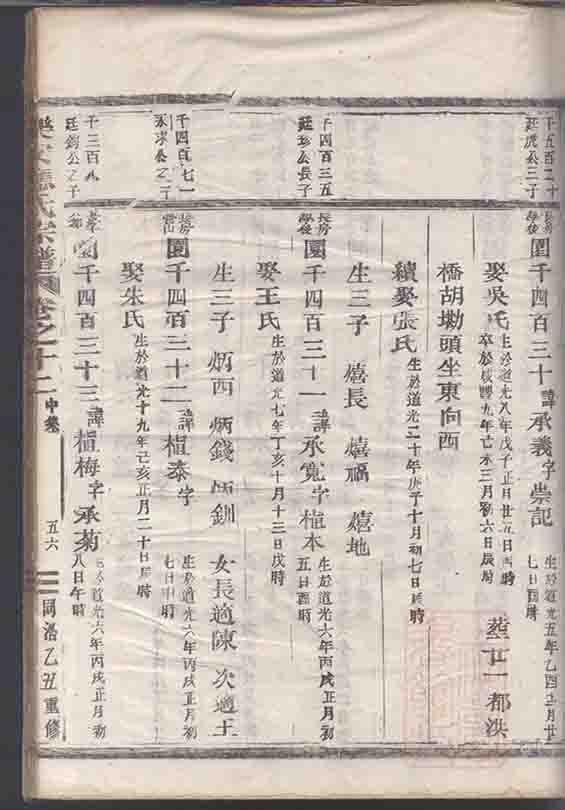 千五百二十
廷虎公三子
長房
學後
園千四百三十諱承義字崇記
生於道光五年乙酉二月廿
七日酉時
娶吳氏
生於道光八年戊子正月廿五日酉時
卒於咸豐九年己未三月初六日辰時
葬廿一都洪
橋胡墈頭坐東向西
續娶張氏
生於道光二十年庚子十月初七日辰時
生三子 熺長 熺福 熺地
千四百三五
廷珍公長子
長房
學後
園千四百三十一諱承寬字植本
生於道光六年丙戌正月初
五日酉時
娶王氏
生於道光七年丁亥十月十三日戌時
生三子 炳西 炳錢 炳釧 女長適陳 次適王
千四百七一
公之子
長房
園千四百三十二諱植泰字
生於道光六年丙戌正月初
七日申時
娶朱氏
生於道光十九年己亥正月二十日辰時
千三百八
廷鈞公之子
園千四百三十三諱植梅字承菊
生於道光六年丙戌正月初
八日午時
氏宗譜 卷之十二 中巻 五六 同治乙丑重修